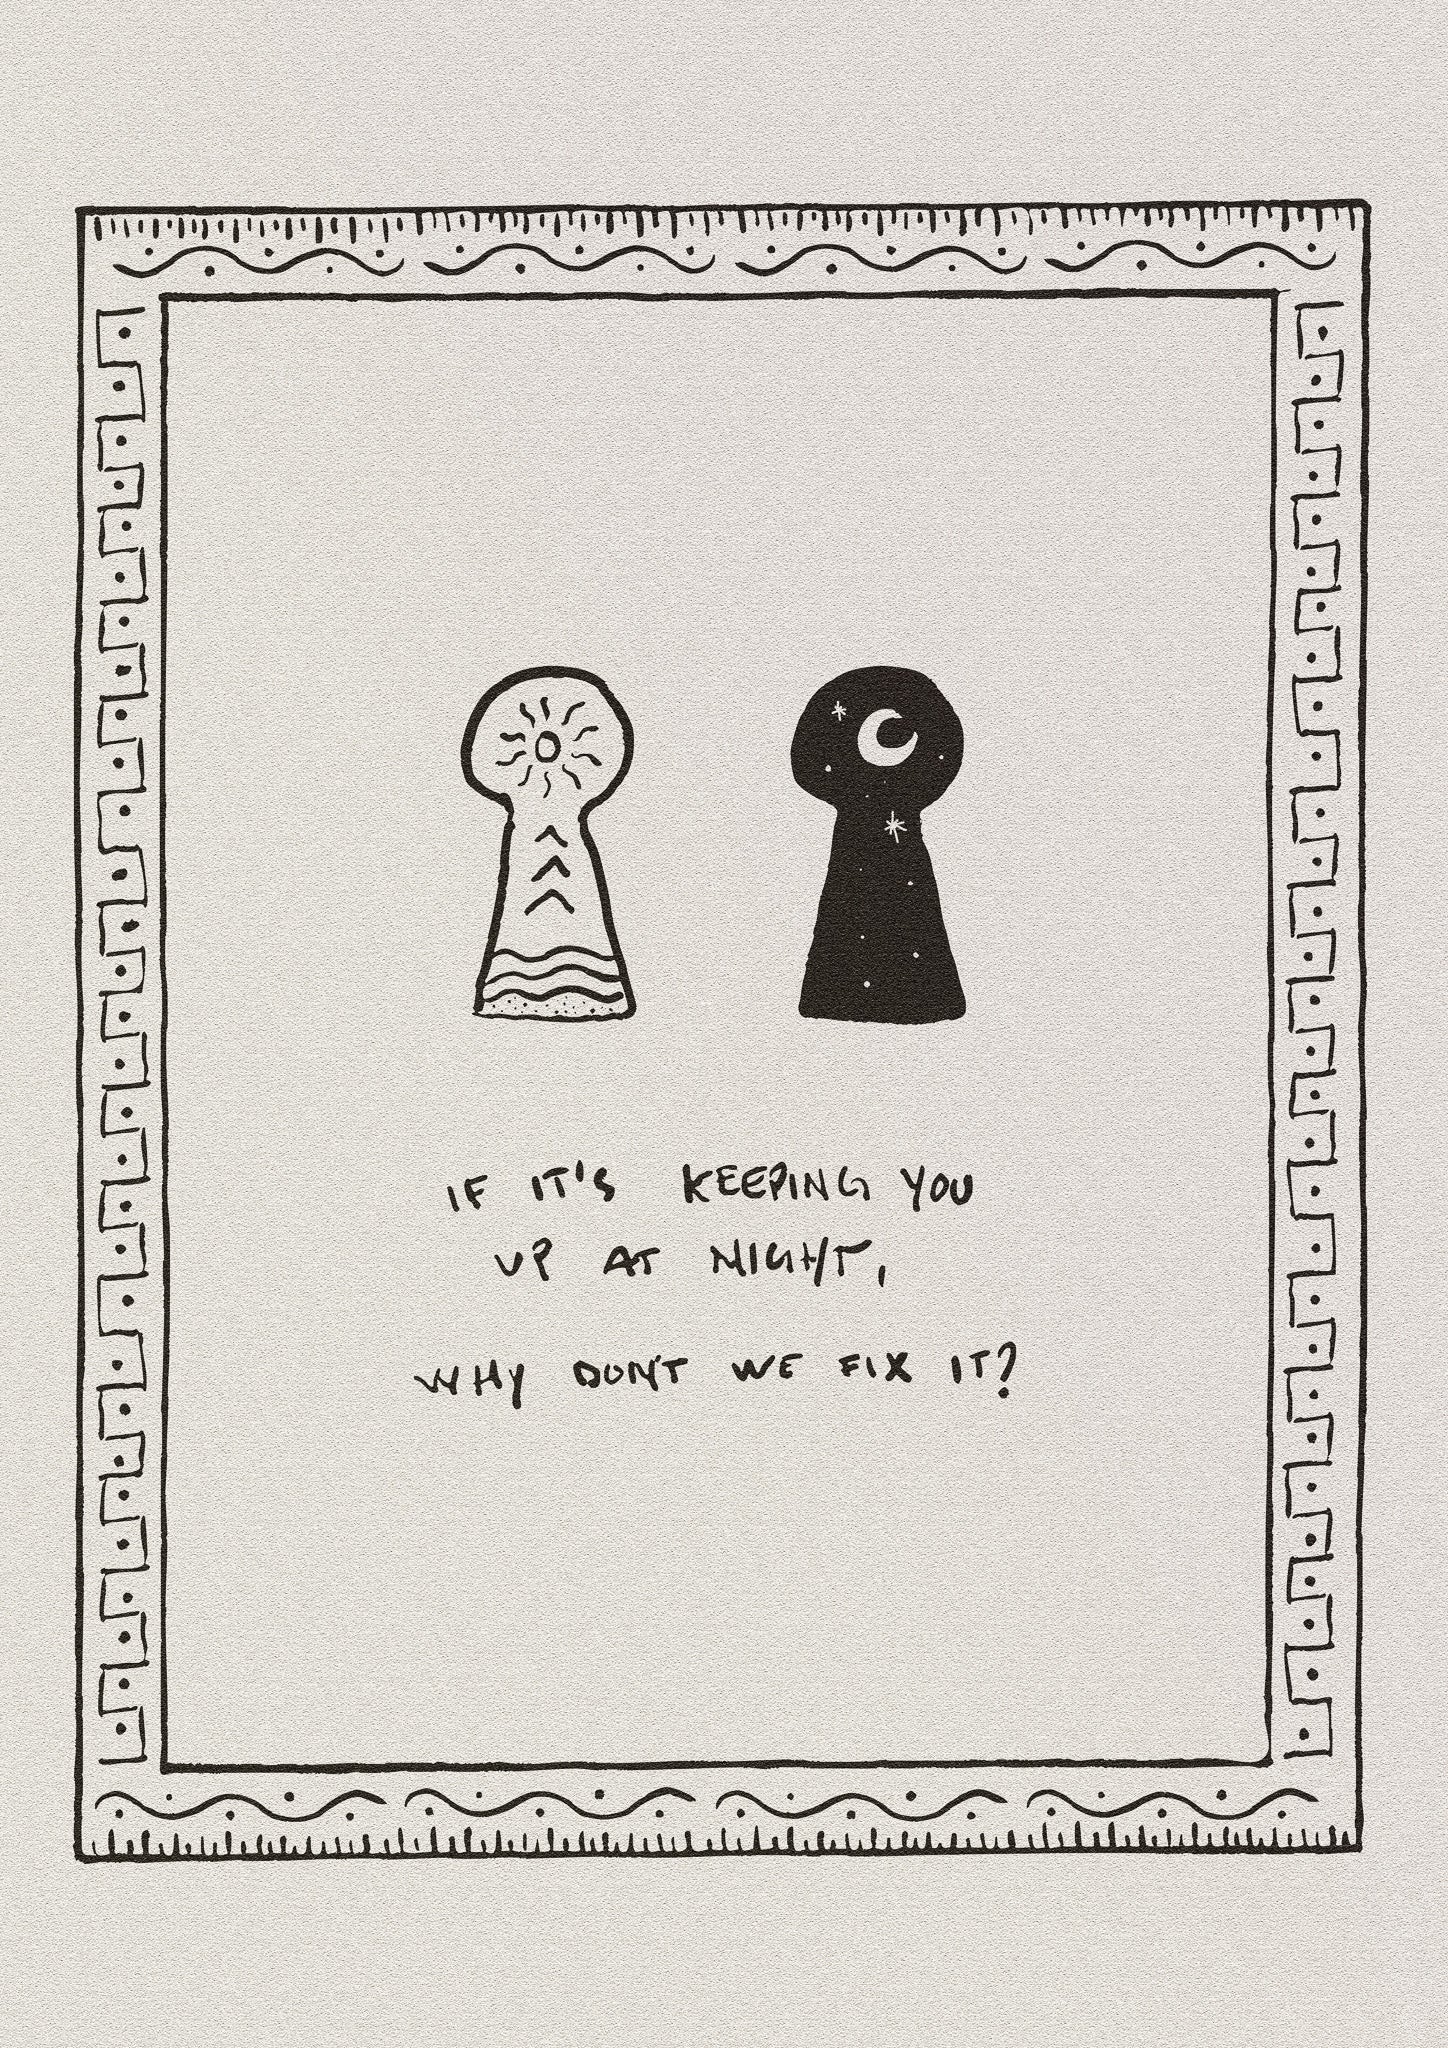 IF IT'S KEEPING YOU
UP AT NIGHT,
WHY DON'T WE FIX IT?